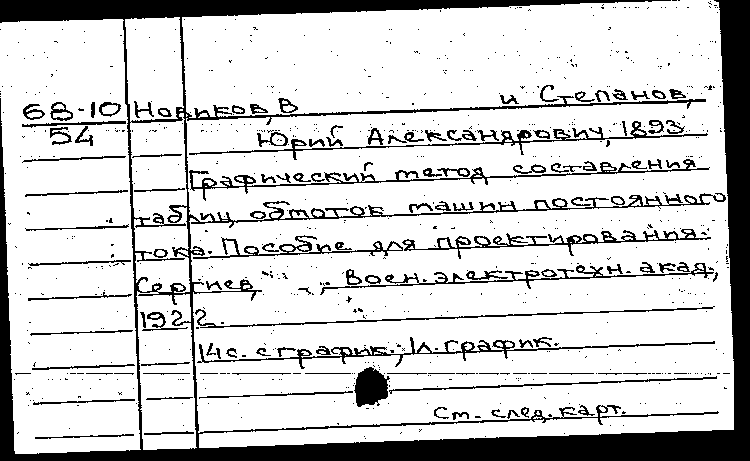 68-10 Новиков, В и Степанов,
54 Юрий Александрович, 1893
Графический метод составления
таблиц обмоток машин постоянного
тока. Пособие для проектирования.
Сергиев, Воен. электротехн. акад.,
1922.
14 с. с график.; 1 л. график.
См. след. карт.